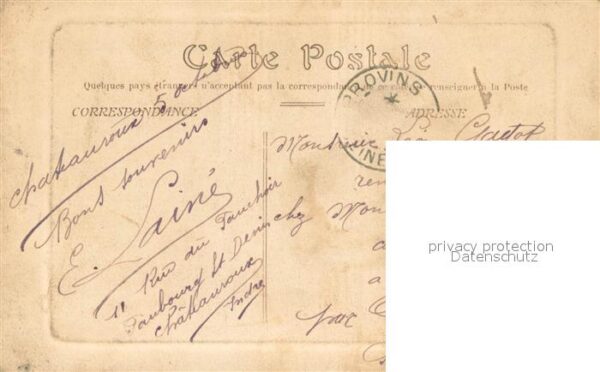 Carte Postale
Quelques pays étrangers n'acceptant pas la correspondance de ce côté se renseigner à la Poste
CORRESPONDANCE
ADRESSE
PROVINS
Chateauroux 5
Bons souvenirs
E. Lainé
11 Rue du
Faubourg St Denis
Châteauroux
Indre
Monsieur
chez Mon
privacy protection
Datenschutz